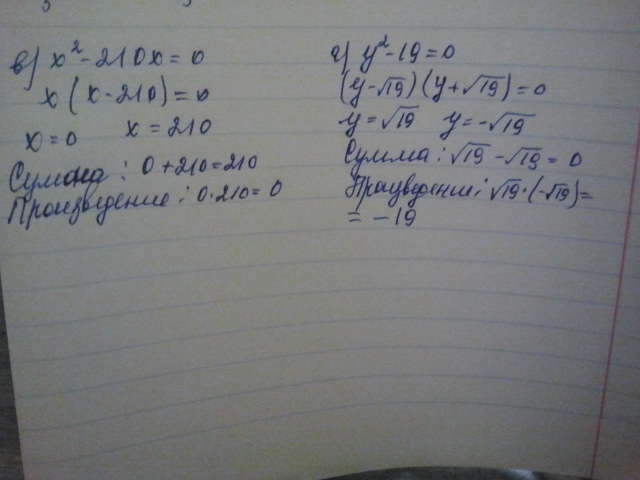 в) x² - 210x = 0
x(x - 210) = 0
x = 0 x = 210
Сумма: 0 + 210 = 210
Произведение: 0·210 = 0
г) y² - 19 = 0
(y - √19)(y + √19) = 0
y = √19 y = -√19
Сумма: √19 - √19 = 0
Произведение: √19·(-√19) =
= -19